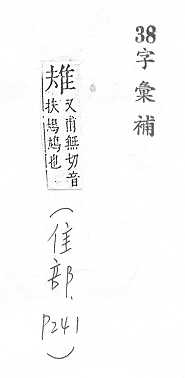 38字彙補
又甫無切音
也
(隹部. P241)